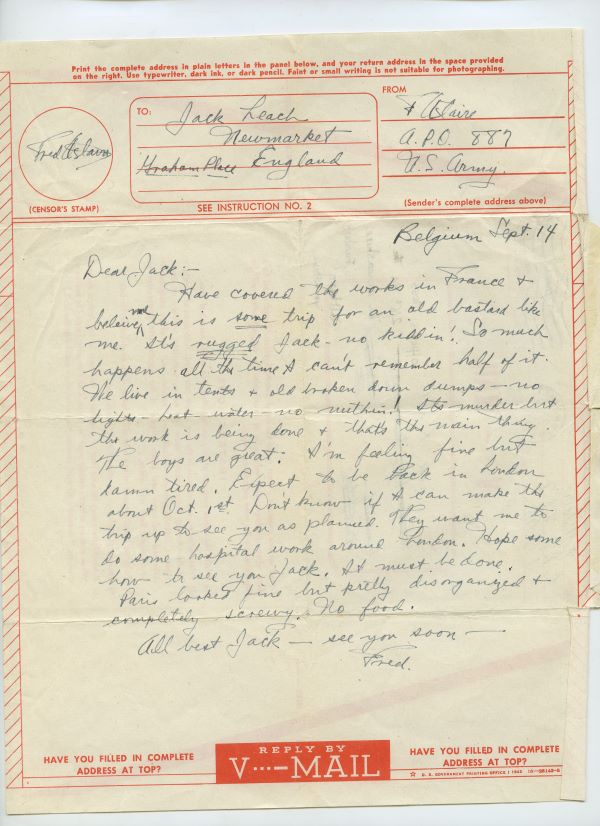 Print the complete address in plain letters in the panel below, and your return address in the space provided
on the right. Use typewriter, dark ink, or dark pencil. Faint or small writing is not suitable for photographing.
TO:
Jack Leach
Newmarket
Graham Place England
FROM
F Astaire
A.P.O. 887
U.S. Army.
Fred Astaire
(CENSOR'S STAMP)
SEE INSTRUCTION NO. 2
(Sender's complete address above)
Belgium Sept. 14
Dear Jack:-
Have covered the works in France &
beleive me this is some trip for an old bastard like
me. It's rugged Jack - no kiddin'. So much
happens all the time I can't remember half of it.
We live in tents & old broken down dumps - no
lights - heat - water - no nuthin! Its murder but
the work is being done & that's the main thing.
The boys are great. I'm feeling fine but
damn tired. Expect to be back in London
about Oct. 1st. Don't know if I can make the
trip up to see you as planned. They want me to
do some hospital work around London. Hope some
how to see you Jack. It must be done.
Paris looked fine but pretty disorganized &
completely screwy. No food.
All best Jack - see you soon -
Fred.
HAVE YOU FILLED IN COMPLETE
ADDRESS AT TOP?
REPLY BY
V···—MAIL
HAVE YOU FILLED IN COMPLETE
ADDRESS AT TOP?
☆ U. S. GOVERNMENT PRINTING OFFICE : 1943 16—28143-5